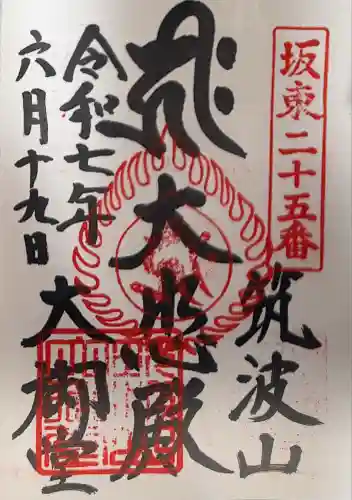 坂東二十五番
筑波山
大悲殿
大御堂
令和七年
六月十九日